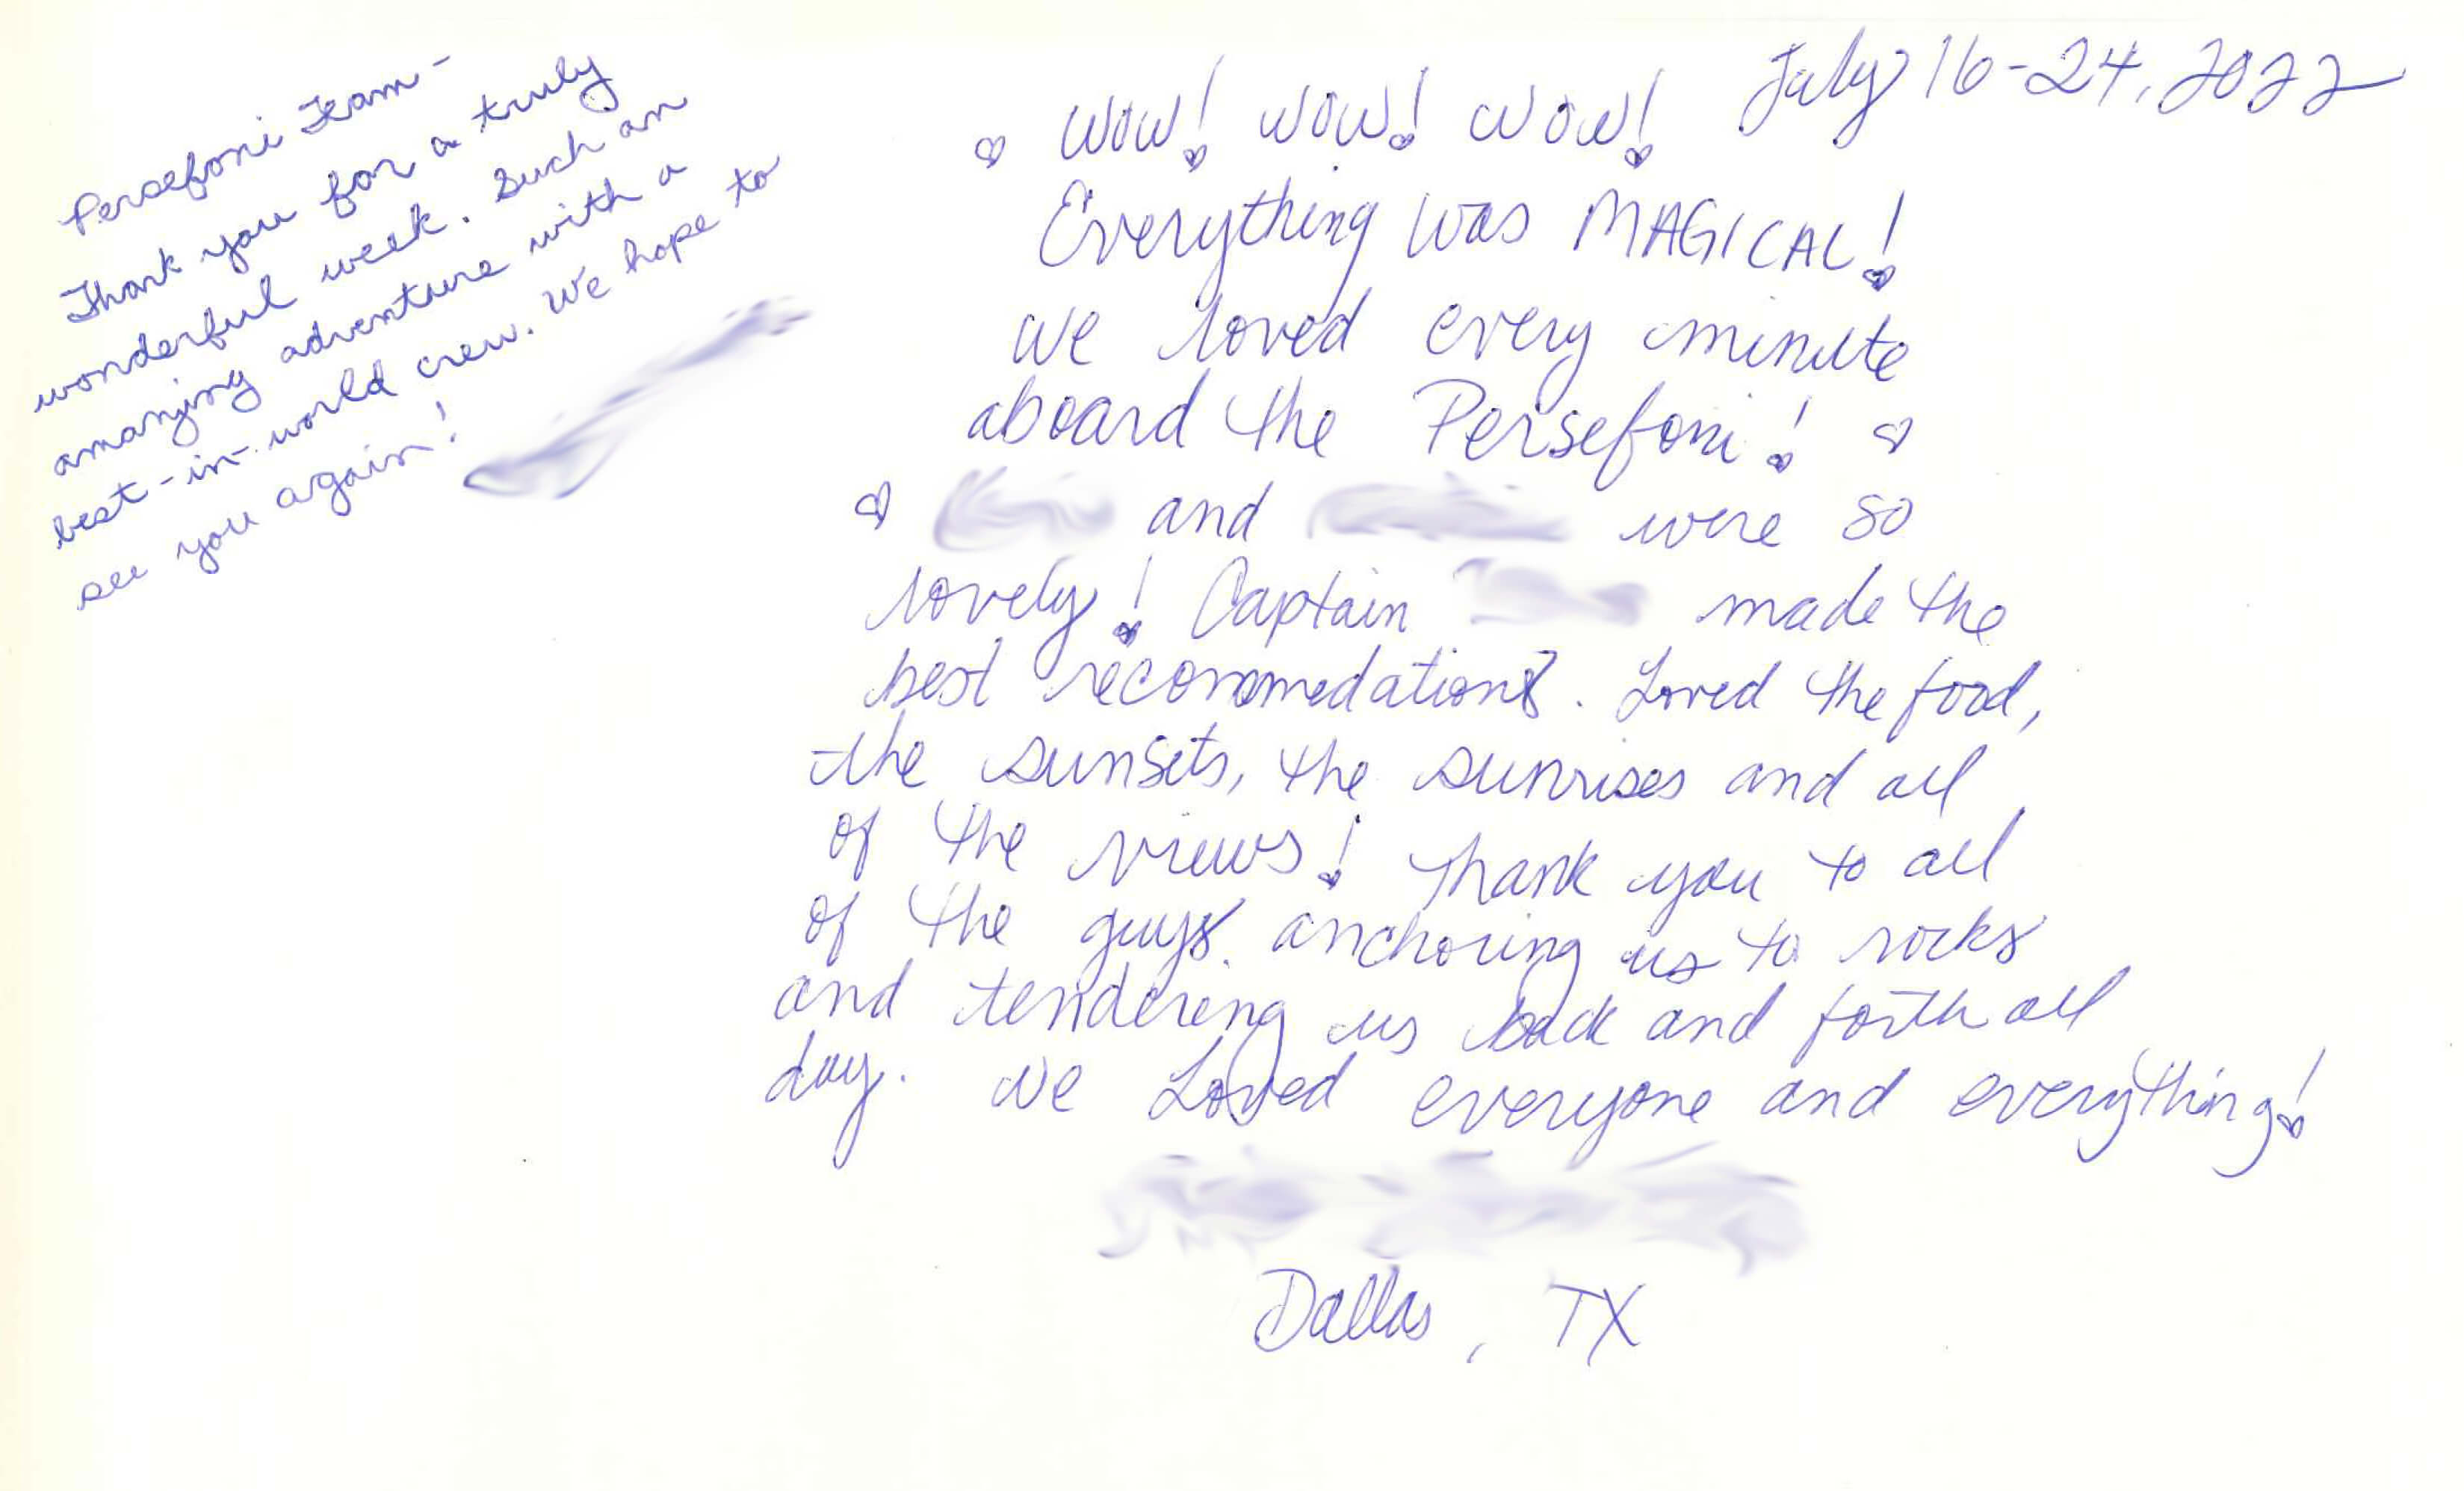 Persefoni Team -
Thank you for a truly
wonderful week. Such an
amazing adventure with a
best-in-world crew. We hope to
see you again!
July 16-24, 2022
♡ WOW! WOW! WOW!
Everything was MAGICAL!
We loved every minute
aboard the Persefoni! ♡
♡ and were so
lovely! Captain made the
best recommedations. Loved the food,
the sunsets, the sunrises and all
of the views! Thank you to all
of the guys anchoring us to rocks
and tendering us back and forth all
day. We Loved everyone and everything!
Dallas, TX